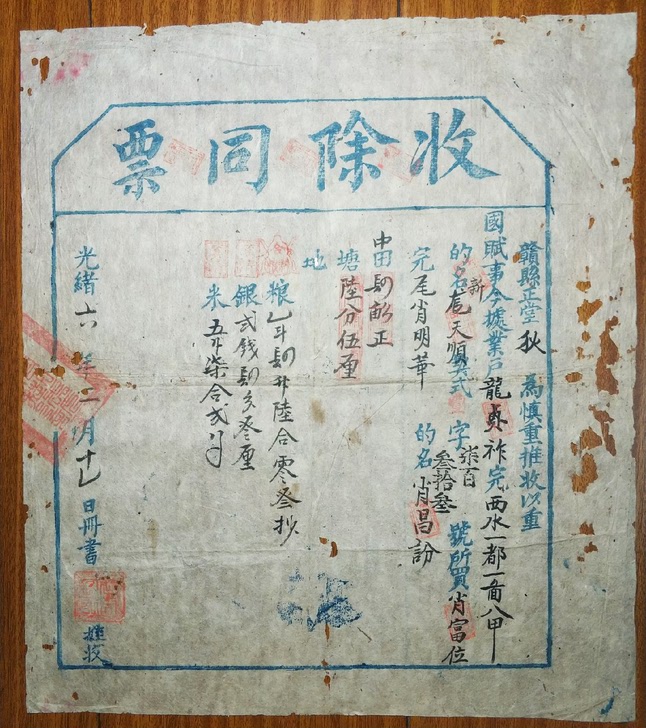 收除同票
贛縣正堂狄 為慎重推收以重
國賦事今據業戶龍貞祚完西水一都一啚八甲
的名新 天順 式 字柒百叁拾叁號所買肖富位
完尾肖明華 的名肖昌訜
中田 畝正
塘陸分伍厘
地
粮 斗 升陸合零叁抄
銀弍錢 分叁厘
米五升柒合弍勺
光緒六年二月十七日冊書
推收